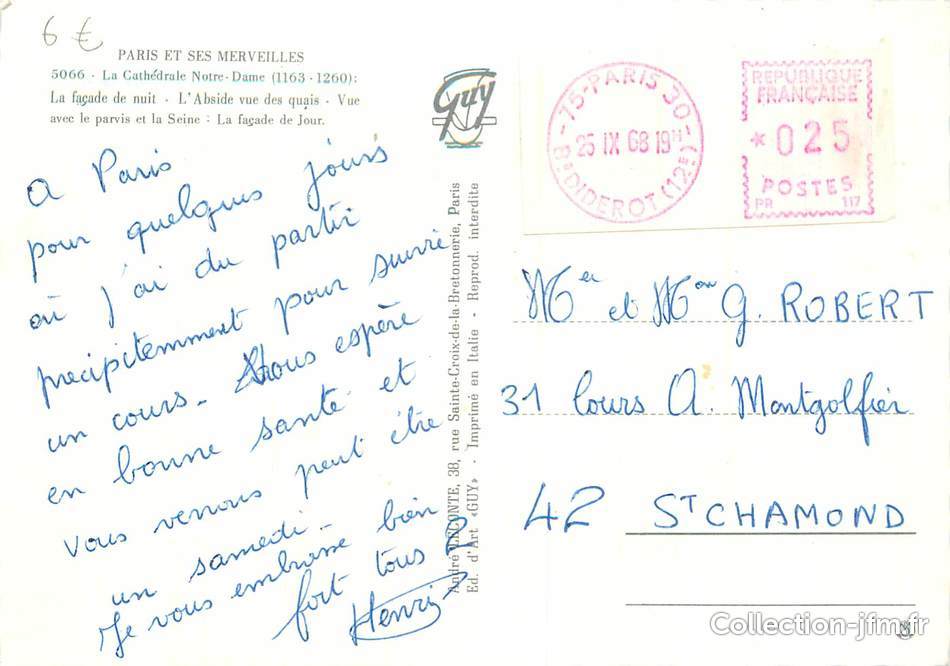 6 €
PARIS ET SES MERVEILLES
5066 - La Cathédrale Notre-Dame (1163 - 1260):
La façade de nuit - L'Abside vue des quais - Vue
avec le parvis et la Seine : La façade de Jour.
Guy
A Paris
pour quelques jours
où j'ai du partir
precipitemment pour suivre
un cours. Vous espère
en bonne santé et
vous verrous peut être
un samedi.
Je vous embrasse bien
fort tous 2
Henri
André LECONTE, 38, rue Sainte-Croix-de-la-Bretonnerie, Paris
Ed. d'Art «GUY» - Imprimé en Italie - Reprod. interdite
75-PARIS 30
25 IX 68 19H
Bd DIDEROT (12E)
REPUBLIQUE
FRANÇAISE
* 025
POSTES
PR 117
Mr et Mme G. ROBERT
31 Cours A. Montgolfier
42 ST CHAMOND
Collection-jfm.fr